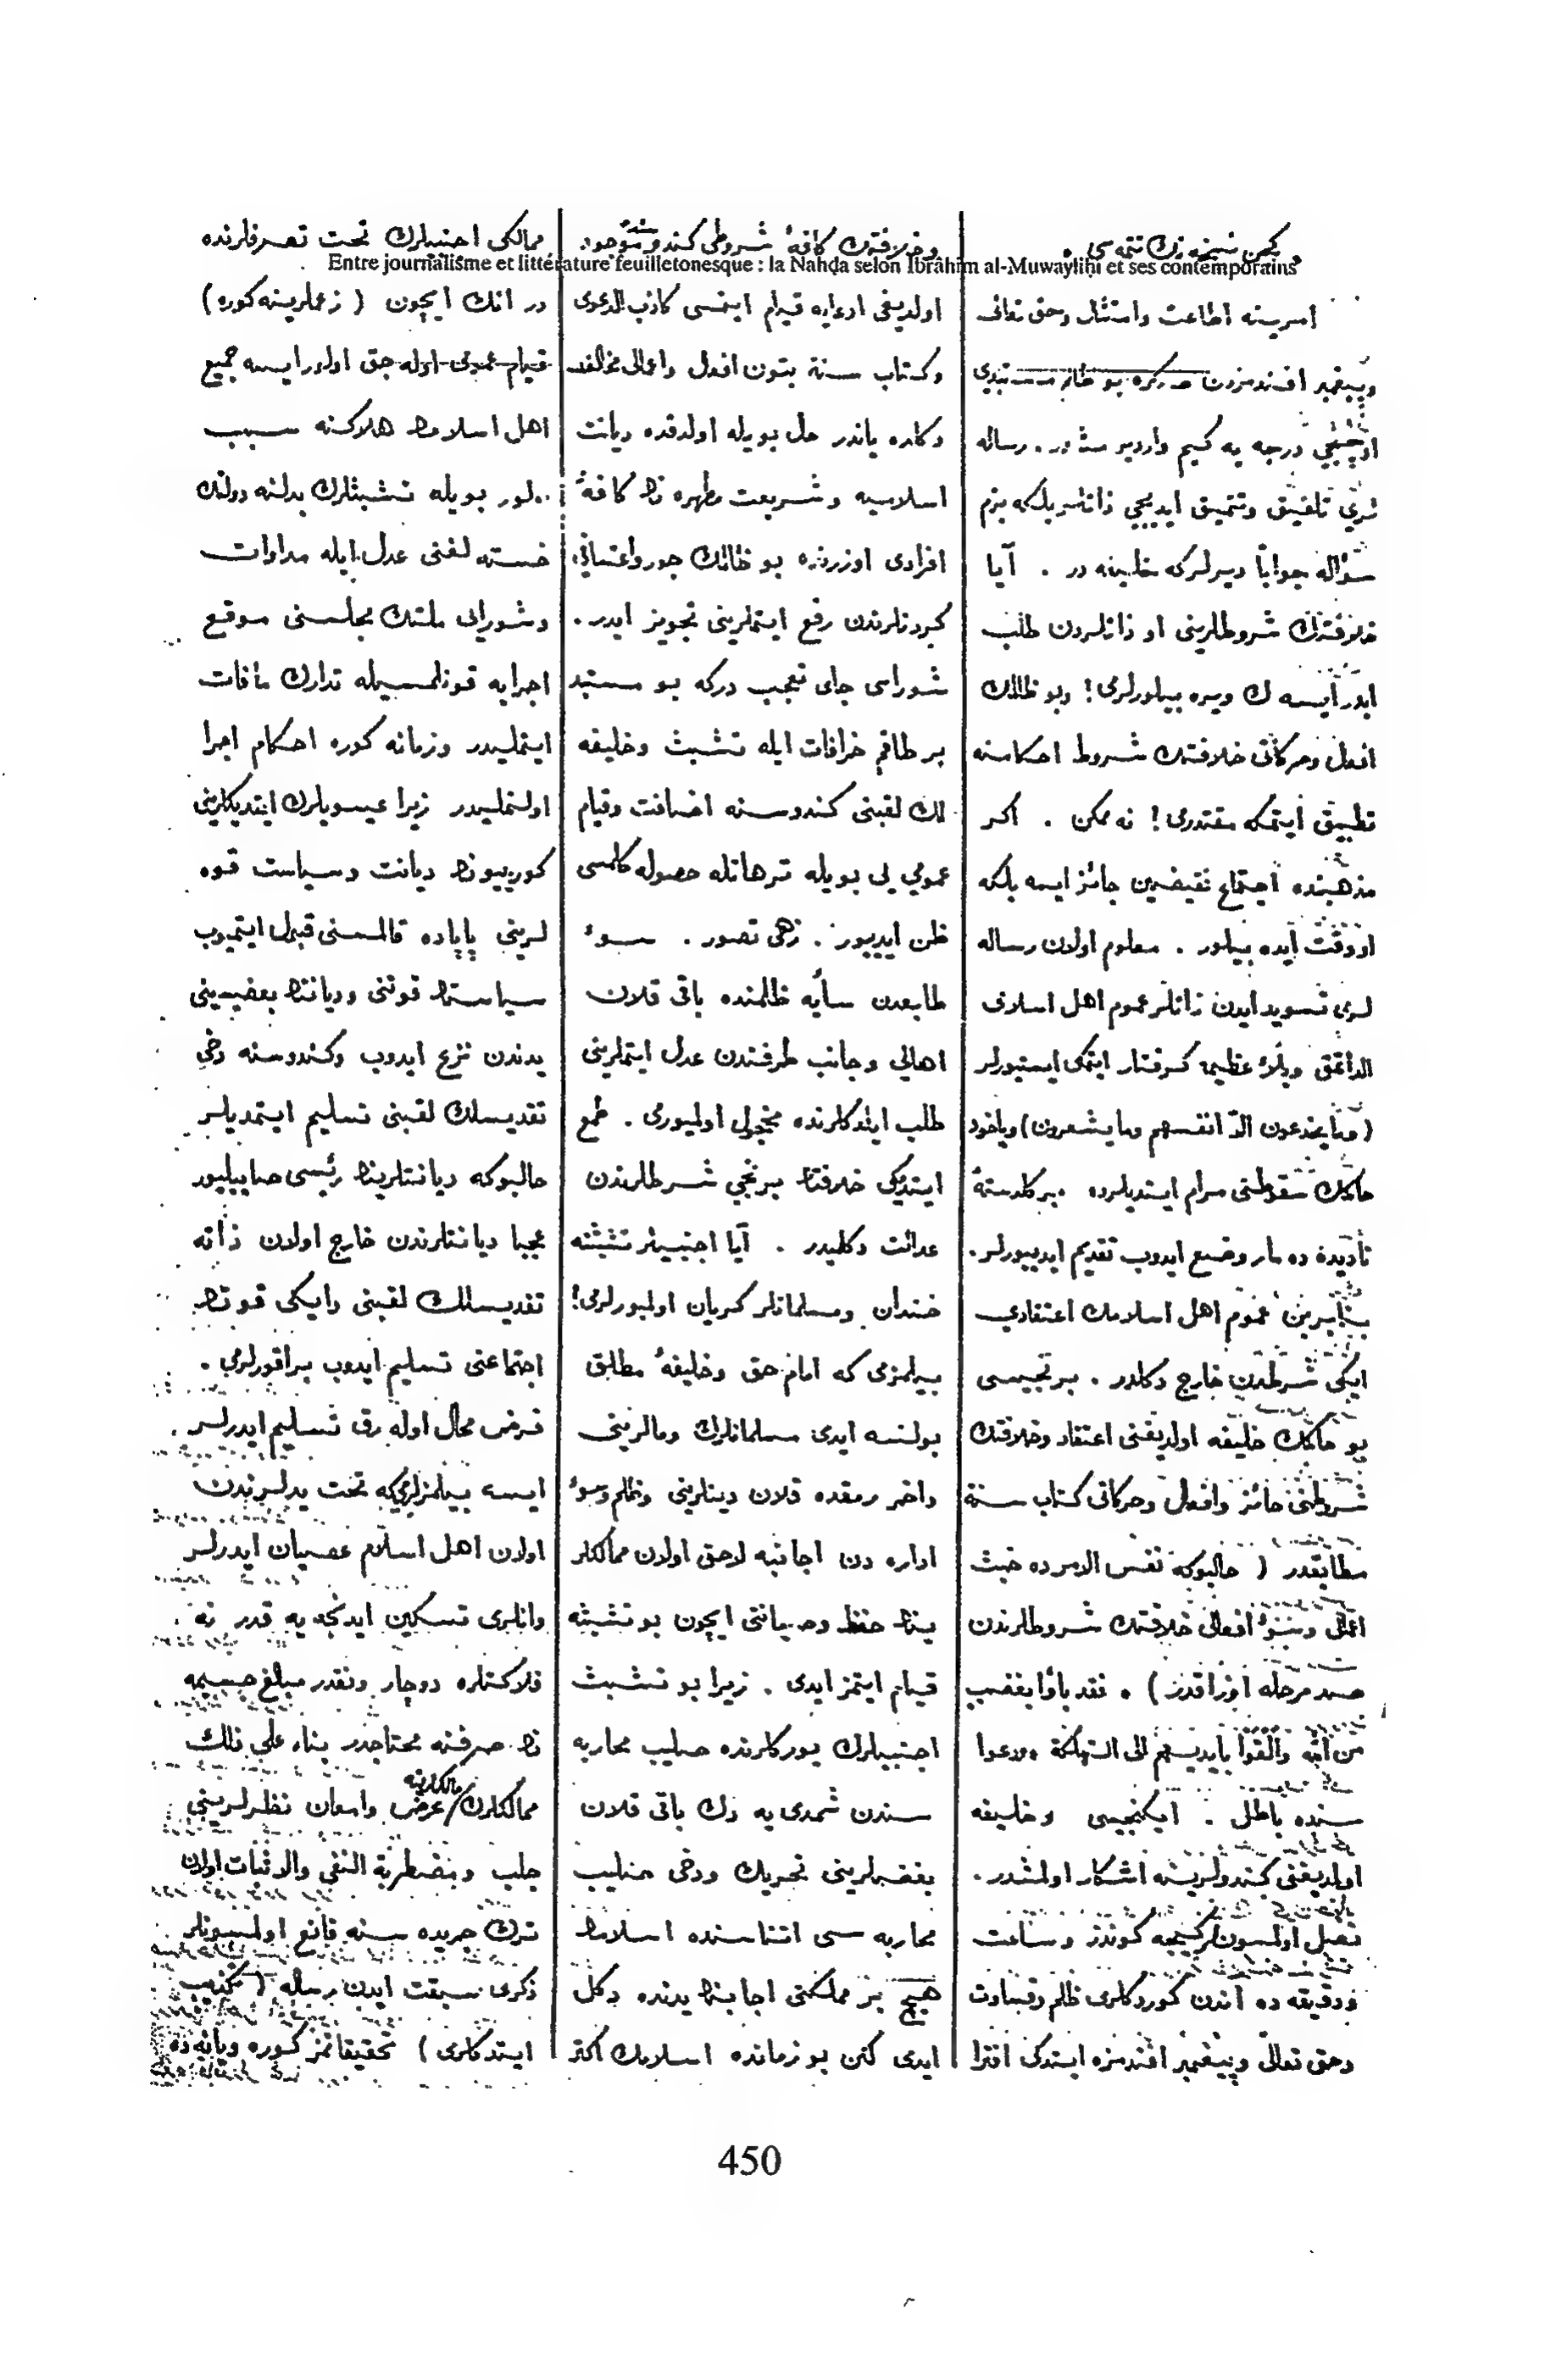 Entre journalisme et littérature feuilletonesque : la Nahḍa selon Ibrâhîm al-Muwayliḥî et ses contemporains
كچن نسخه نك تتمه سی .
امرینه اطاعت وامتثال وحق تعالی
وپیغمبر افندمزدن صكره بو ظالم مستبدی
اوچنجی درجه یه كیم وار دیر مشدر . رساله
لری تلفیق وتنمیق ایدیجی ذاتلر بلكه بزم
سؤاله جواباً دیرلركه خلیفه در . آیا
خلافتك شروطلرینی او ذاتلردن طلب
ایدر ایسه ك ویره بیلورلرمی ! وبو ظالمك
افعال وحركاتی خلافتك شروط احكامنه
تطبیق ایتمكه مقتدرمی ! نه ممكن . اكر
مذهبنده اجتماع نقیضین جائز ایسه بلكه
او وقت ایده بیلور . معلوم اولان رساله
لری تسوید ایدن ذاتلر عموم اهل اسلامی
الداتمق وبلاء عظیمه كرفتار ایتمك ایستیورلر
(وما یخدعون الا انفسهم وما یشعرون) ویاخود
حاكمك سقوطنی مرام ایستدیلرده بر كلدسته
نادیده ده مار وضع ایدوب تقدیم ایدییورلر .
بناءً برین عموم اهل اسلامك اعتقادی
ایكی شرطدن خارج دكلدر . برنجیسی
بو حاكمك خلیفه اولدیغنی اعتقاد وخلافتك
شروطنی حائز وافعال وحركاتی كتاب سنة
مطابقدر ( حالبوكه نفس الامرده خبث
اعمالی وسوء افعالی خلافتك شروطلرندن
صد مرحله اوزاقدر ) . فقد باؤا بغضب
من الله والقوا بایدیهم الی التهلكة ودعوا
سنده باطل . ایكنجیسی وخلیفه
اولدیغنی كندولرینه اشكار اولمشدر .
نصل اولمسون لر كیجه كوندز وساعت
ودقیقه ده آندن كوردكلری ظلم وقساوت
وحق تعالی وپیغمبر افندمزه ایتدكی افترا
وخلافتك كافهٔ شروطی كندوسنده موجود
اولدیغی ادعایه قیام ایتمسی كاذب الدعوی
وكتاب سنة بتون افعال واعمالی مخالفد
وكاره یاندر حال بویله اولدقده دیانت
اسلامیه وشریعت مطهره نك كافهٔ
افرادی اوزرینه بو ظالمك جور واعتسافی
كردنلرندن رفع ایتملرینی تجویز ایدر .
شوراسی جای تعجب دركه بو مستبد
بر طاقم خرافات ایله تشبث وخلیفه
لك لقبنی كندوسنه اضافت وقیام
عمومی یی بویله ترهاتله حصوله كلمسی
ظن ایدییور . زهی تصور . سوء
طابعدن سایه ظلمنده باقی قلان
اهالی وجانب طرفندن عدل ایتملرینی
طلب ایتدكلرنده مخجول اولمیورمی . طمع
ایتدیكی خلافتك برنجی شرطلرندن
عدالت دكلیدر . آیا اجنبیلر تشبثنه
خندان ومسلمانلر كریان اولمیورلرمی !
بیلمزمی كه امام حق وخلیفهٔ مطلق
بولنسه ایدی مسلمانلرك ومالرینی
داخر رمقده قلان دینلرینی وظلم وسوء
اداره دن اجانبه لاحق اولان ممالكلر
ینك حفظ وصیانتی ایچون بو تشبثه
قیام ایتمز ایدی . زیرا بو تشبث
اجنبیلرك یوركلرنده صلیب محاربه
سندن شمدی یه دك باقی قلان
بغضلرینی تحریك ودخی صلیب
محاربه سی اثناسنده اسلامك
هیچ بر مملكتی اجانبك یدنده دكل
ایدی لكن بو زمانده اسلامك اكثر
ممالكی اجنبیلرك تحت تصرفلرنده
در انك ایچون ( زعملرینه كوره )
قیام عمومی اوله جق اولور ایسه جمیع
اهل اسلامك هلاكنه سبب
اولور بویله تشبثلرك بدلنه دولتك
خسته لغنی عدل ایله مداوات
وشورای ملتك مجلسنی موقع
اجرایه قونلمسیله تدارك مافات
ایتملیدر وزمانه كوره احكام اجرا
اولنملیدر زیرا عیسویلرك ایتدیكلرینی
كورییورك دیانت وسیاست قوه
لرینی پاپاده قالمسنی قبول ایتمیوب
سیاستك قوتنی ودیانتك بعضیسینی
یدندن نزع ایدوب وكندوسنه دخی
تقدیسلك لقبنی تسلیم ایتمدیلر
حالبوكه دیانتلرینك رئیسی صاییلیور
عجبا دیانتلرندن خارج اولان ذاته
تقدیسلك لقبنی وایكی قوتك
اجتماعنی تسلیم ایدوب براقورلرمی .
فرض محال اوله رق تسلیم ایدرلر
ایسه بیلمزلرمی كه تحت یدلرندن
اولان اهل اسلام عصیان ایدرلر
وانلری تسكین ایدنجه یه قدر نه
فلاكتلره دوچار ونقدر مبالغ جسیمه
نك صرفنه محتاجدر بناء علی ذلك
ممالكلرك عرض وامعان نظرلرینی
جلب ومضطربة النفی والاثبات اولان
ترك جریده سنه قانع اولمسونلر
ذكری سبقت ایدن رساله ( تكذیب
ایتدكلری ) تحقیقاتمز كوره
450